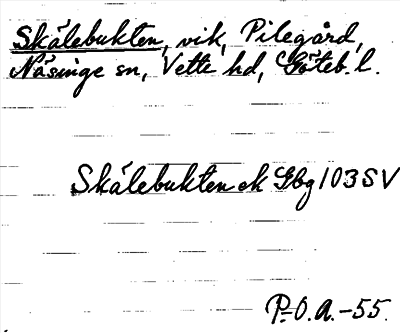 Skålebukten, vik, Pilegård,
Näsinge sn, Vette hd, Göteb. l.
Skålebukten ek Gbg 103 SV
P.-O.A.-55.